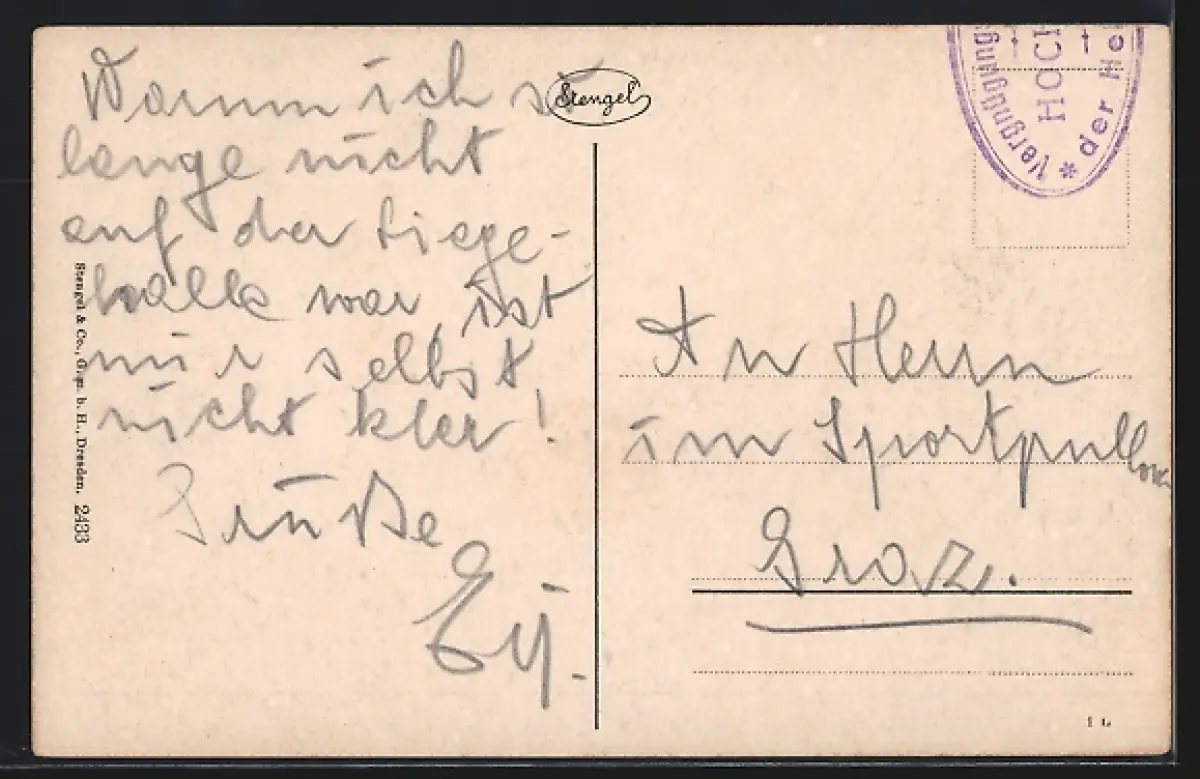 Warum ich so
lange nicht
auf der Liege-
halle war, ist
mir selbst
nicht klar!
Grüße
Stengel
Stengel & Co., G. m. b. H., Dresden. 2433
Vergnügungs
HOC
* der He
An Herrn
im Sportpullover
Graz.